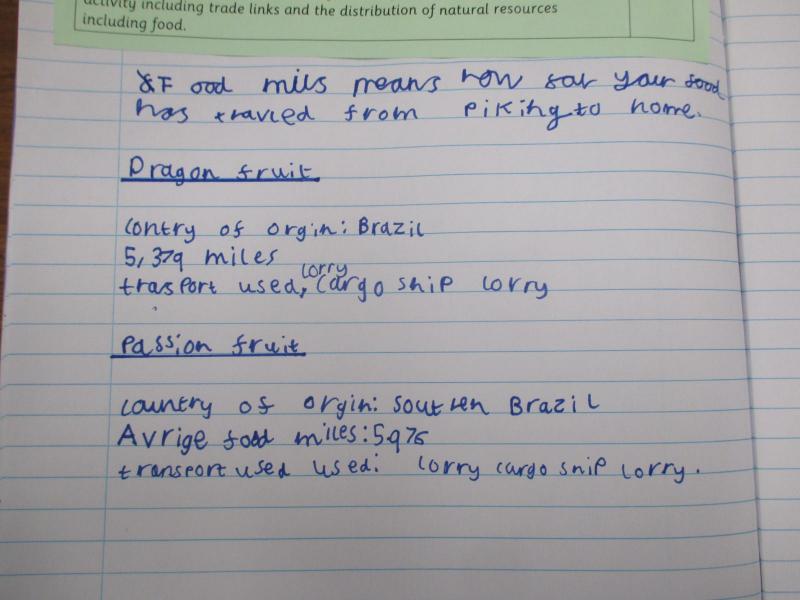 activity including trade links and the distribution of natural resources
including food.
Food mils means how far your food
has travled from piking to home.
Dragon fruit
Contry of orgin: Brazil
5,379 miles
lorry
trasport used, cargo ship lorry
Passion fruit
country of orgin: southen Brazil
Avrige food miles: 5976
transport used used: lorry cargo ship lorry.